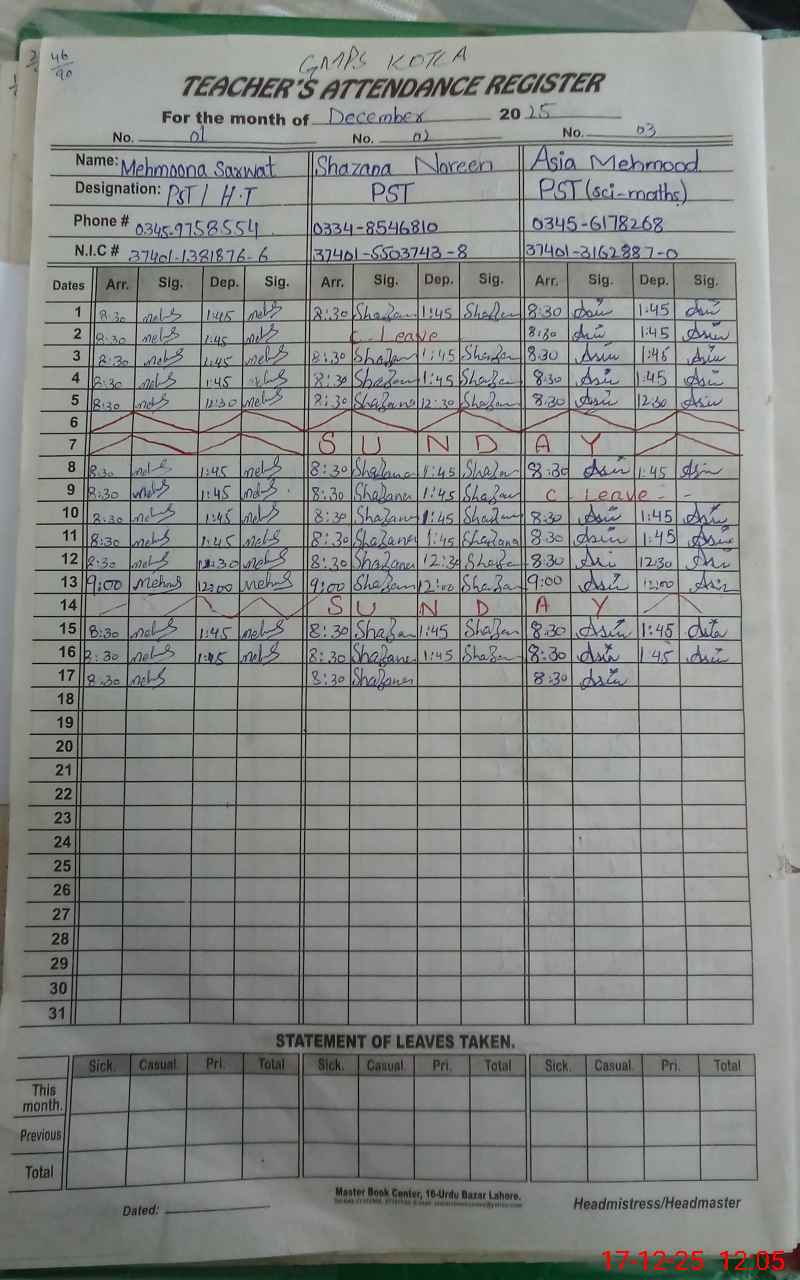 46
90
GMPS KOTLA
TEACHER'S ATTENDANCE REGISTER
For the month of December 2025
No. 01 No. 02 No. 03
Name: Mehmoona Sarwat Shazana Noreen Asia Mehmood
Designation: PST / H.T PST PST (sci-maths)
Phone # 0345-9758554 0334-8546810 0345-6178268
N.I.C # 37401-1381876-6 37401-5503743-8 37401-3162887-0
Dates Arr. Sig. Dep. Sig. Arr. Sig. Dep. Sig. Arr. Sig. Dep. Sig.
1 8:30 1:45 8:30 Shazan 1:45 Shazan 8:30 1:45
2 8:30 1:45 C. Leave 8:30 1:45
3 8:30 1:45 8:30 Shazan 1:45 Shazan 8:30 1:45
4 8:30 1:45 8:30 Shazan 1:45 Shazan 8:30 1:45
5 8:30 12:30 8:30 Shazana 12:30 Shazan 8:30 12:30
6
7 SUNDAY
8 8:30 1:45 8:30 Shazana 1:45 Shazan 8:30 1:45
9 8:30 1:45 8:30 Shazana 1:45 Shazan C. Leave
10 8:30 1:45 8:30 Shazana 1:45 Shazan 8:30 1:45
11 8:30 1:45 8:30 Shazana 1:45 Shazana 8:30 1:45
12 8:30 12:30 8:30 Shazana 12:30 Shazan 8:30 12:30
13 9:00 12:00 9:00 Shazan 12:00 Shazan 9:00 12:00
14 SUNDAY
15 8:30 1:45 8:30 Shazan 1:45 Shazan 8:30 1:45
16 8:30 1:45 8:30 Shazana 1:45 Shazan 8:30 1:45
17 8:30 8:30 Shazana 8:30
18
19
20
21
22
23
24
25
26
27
28
29
30
31
STATEMENT OF LEAVES TAKEN.
Sick. Casual. Pri. Total Sick. Casual. Pri. Total Sick. Casual. Pri. Total
This
month.
Previous
Total
Master Book Center, 16-Urdu Bazar Lahore.
Dated: Headmistress/Headmaster
17-12-25 12:05